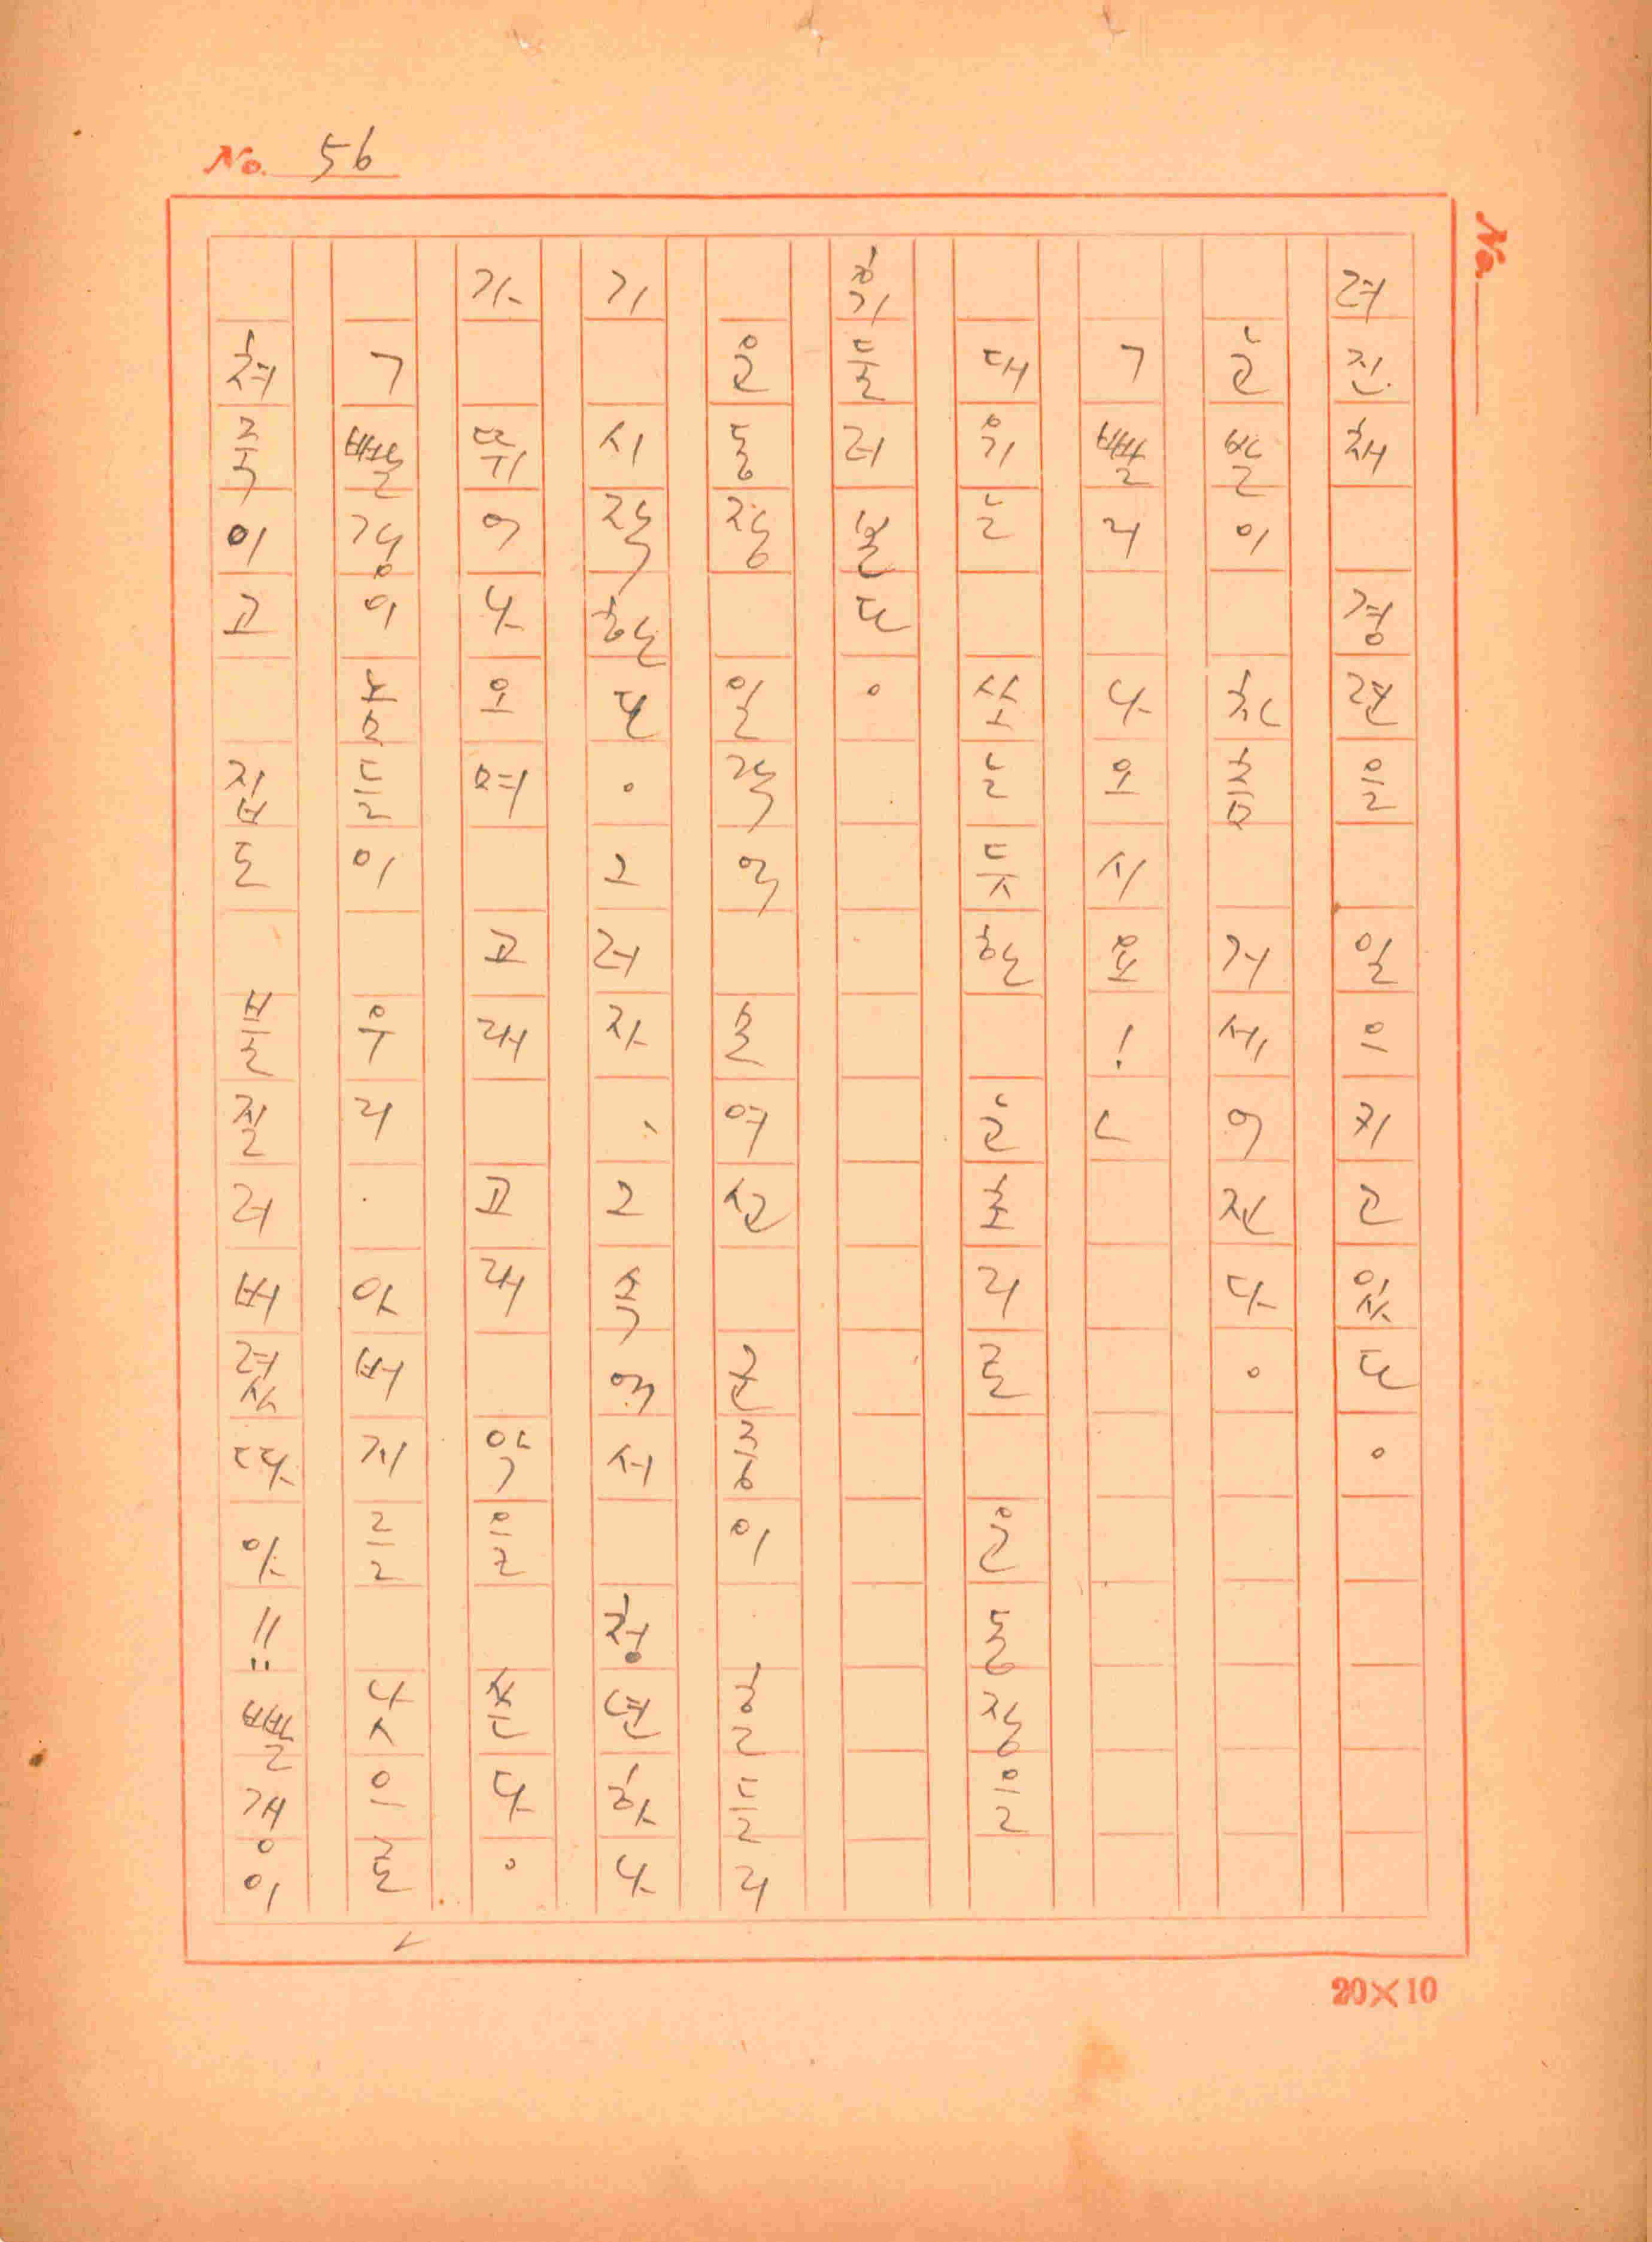 No. 56
려진채 경련을 일으키고있다。
눈발이 차츰 거세어진다。
「빨리 나오시요!」
대위는 쏘는듯한 눈초리로 윤동장을
둘러본다。
윤동장 일각에 모여선 군중이 흔들리
기 시작한다。그러자、그속에서 청년하나
가 뛰어나오며 고래 고래 악을 쓴다。
「빨갱이놈들이 우리 아버지를 낫으로
쳐죽이고 집도 불질러버렸다앗!! 빨갱이
No.
20×10